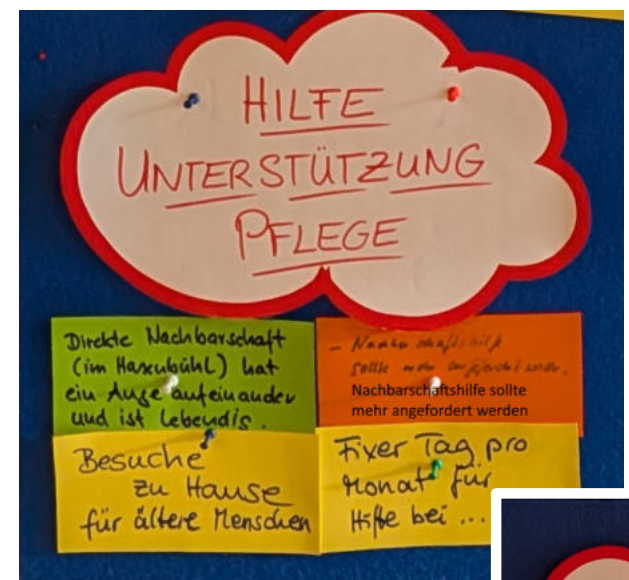 HILFE
UNTERSTÜTZUNG
PFLEGE
Direkte Nachbarschaft
(im Haxnbühl) hat
ein Auge aufeinander
und ist lebendig.
- Nachbarschaftshilfe
sollte mehr angefordert werden.
Nachbarschaftshilfe sollte
mehr angefordert werden
Besuche
zu Hause
für ältere Menschen
Fixer Tag pro
Monat für
Hilfe bei ...